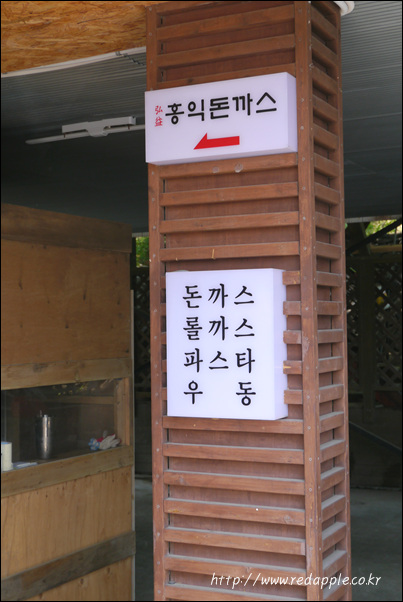 弘益 홍익돈까스
돈까스
롤까스
파스타
우동
http://www.redapple.co.kr